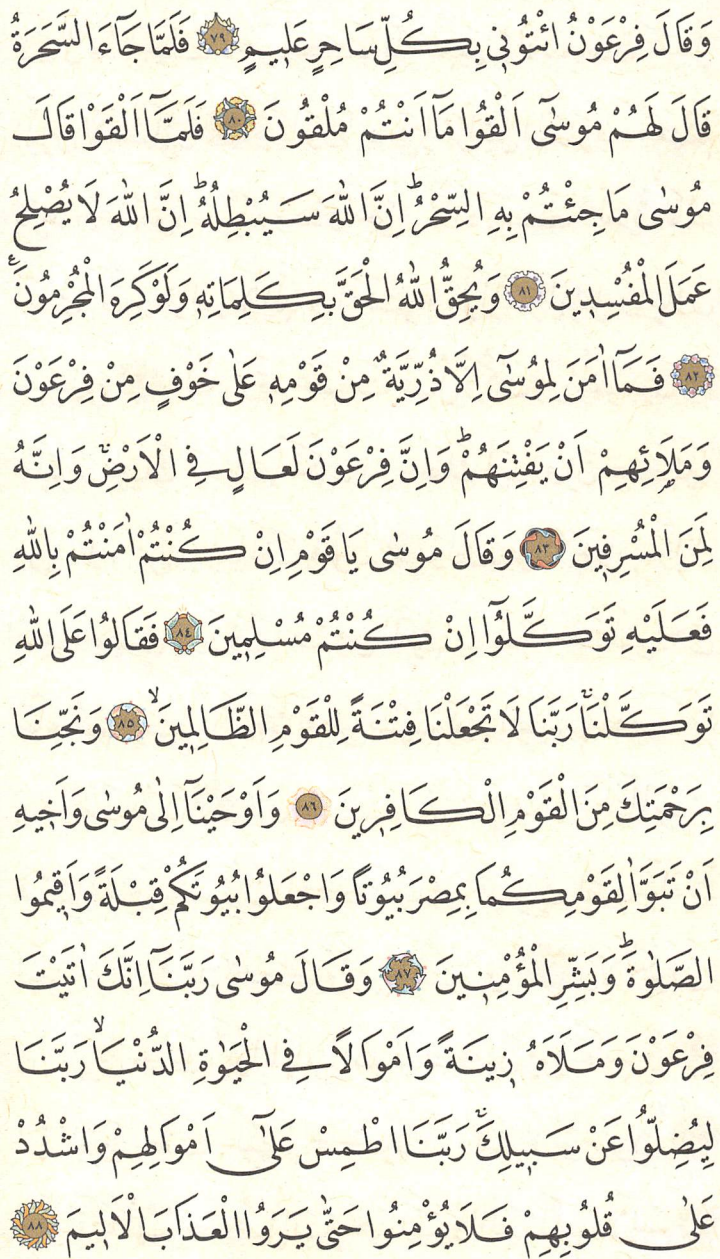 وَقَالَ فِرْعَوْنُ ائْتُونٖي بِكُلِّ سَاحِرٍ عَلٖيمٍ ٧٩ فَلَمَّا جَٓاءَ السَّحَرَةُ
قَالَ لَهُمْ مُوسٰٓى اَلْقُوا مَٓا اَنْتُمْ مُلْقُونَ ٨٠ فَلَمَّٓا اَلْقَوْا قَالَ
مُوسٰى مَا جِئْتُمْ بِهِ السِّحْرُۜ اِنَّ اللّٰهَ سَيُبْطِلُهُۜ اِنَّ اللّٰهَ لَا يُصْلِحُ
عَمَلَ الْمُفْسِدٖينَ ٨١ وَيُحِقُّ اللّٰهُ الْحَقَّ بِكَلِمَاتِهٖ وَلَوْ كَرِهَ الْمُجْرِمُونَࣖ
٨٢ فَمَٓا اٰمَنَ لِمُوسٰٓى اِلَّا ذُرِّيَّةٌ مِنْ قَوْمِهٖ عَلٰى خَوْفٍ مِنْ فِرْعَوْنَ
وَمَلَا۬ئِهِمْ اَنْ يَفْتِنَهُمْۜ وَاِنَّ فِرْعَوْنَ لَعَالٍ فِي الْاَرْضِۚ وَاِنَّهُ
لَمِنَ الْمُسْرِفٖينَ ٨٣ وَقَالَ مُوسٰى يَا قَوْمِ اِنْ كُنْتُمْ اٰمَنْتُمْ بِاللّٰهِ
فَعَلَيْهِ تَوَكَّلُٓوا اِنْ كُنْتُمْ مُسْلِمٖينَ ٨٤ فَقَالُوا عَلَى اللّٰهِ
تَوَكَّلْنَاۚ رَبَّنَا لَا تَجْعَلْنَا فِتْنَةً لِلْقَوْمِ الظَّالِمٖينَۙ ٨٥ وَنَجِّنَا
بِرَحْمَتِكَ مِنَ الْقَوْمِ الْكَافِرٖينَ ٨٦ وَاَوْحَيْنَٓا اِلٰى مُوسٰى وَاَخٖيهِ
اَنْ تَبَوَّاٰ لِقَوْمِكُمَا بِمِصْرَ بُيُوتًا وَاجْعَلُوا بُيُوتَكُمْ قِبْلَةً وَاَقٖيمُوا
الصَّلٰوةَۜ وَبَشِّرِ الْمُؤْمِنٖينَ ٨٧ وَقَالَ مُوسٰى رَبَّنَٓا اِنَّكَ اٰتَيْتَ
فِرْعَوْنَ وَمَلَاَهُ زٖينَةً وَاَمْوَالًا فِي الْحَيٰوةِ الدُّنْيَاۙ رَبَّنَا
لِيُضِلُّوا عَنْ سَبٖيلِكَۚ رَبَّنَا اطْمِسْ عَلٰٓى اَمْوَالِهِمْ وَاشْدُدْ
عَلٰى قُلُوبِهِمْ فَلَا يُؤْمِنُوا حَتّٰى يَرَوُا الْعَذَابَ الْاَلٖيمَ ٨٨